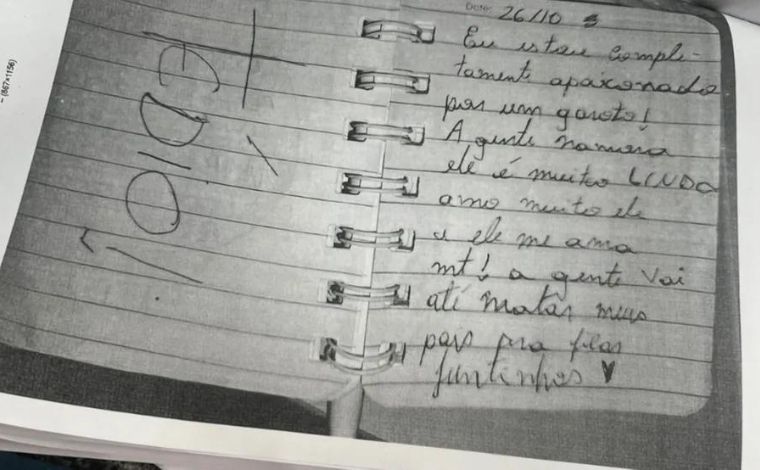 - (867×1156)
TÉDIO!
Date: 26/10
Eu estou comple-
tamente apaxonado
por um garoto!
A gente namora
ele é muito LINDO
amo muito ele
e ele me ama
mt! a gente vai
até matar meus
pais pra ficar
juntinhos ♥